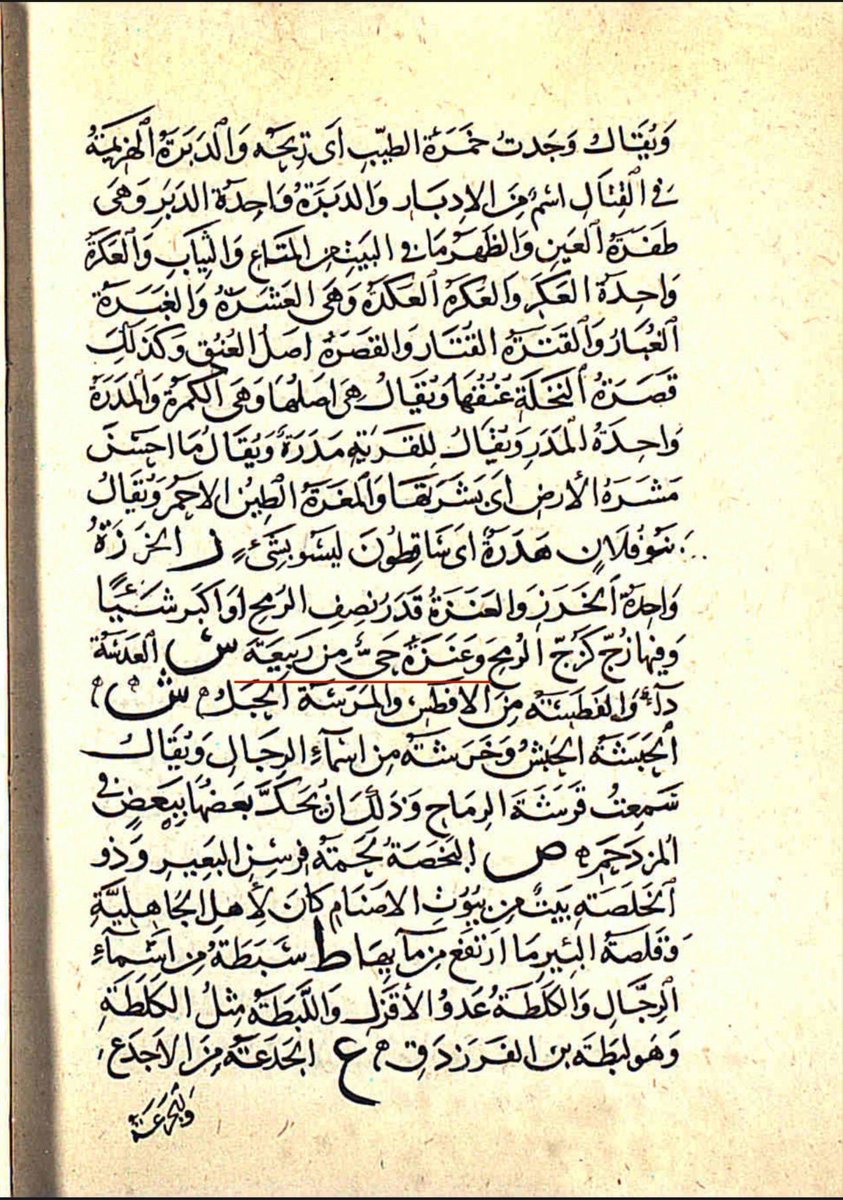 وَيُقَالُ وَجَدتُ خَمَرَةَ الطيّبِ اَى رِيحَه وَالدَبَرَةُ الهَزِيمَةُ
فى القِتَالِ اسمٌ مِنَ الاِدبَارِ وَالدبَرَةُ وَاحِدَةُ الدَبَرِ وَهىَ
ظفَرَةُ العَينِ وَالظَهَرَةُ مَا فى البَيتِ مِنَ المَتَاعِ وَالثِيَابِ وَالعَكَرَةُ
وَاحِدَةُ العَكَرِ وَالعَكَرَةُ العَكَدَةُ وَهىَ العَشَرَةُ وَالغَبَرَةُ
الغُبَارُ وَالقَتَرَةُ القُتَارُ وَالقَصَرَةُ اصَلُ العُنُقِ وَكَذَلِكَ
قَصَرَةُ النَخلَةِ عُنُقُهَا وَيُقَالُ هِىَ اَصلُهَا وَهىَ الكَمَرَةُ وَالمَدَرَةُ
وَاحِدَةُ المَدَرِ وَيُقَالُ لِلقَريَةِ مَدَرَةٌ وَيُقَالُ مَا احسَنَ
مَشَرَةَ الأرضِ اَى بَشَرَتَهَا وَالمَغَرَةُ الطِينُ الاَحمَرُ وَيُقَالُ
بَنُو فُلَانٍ هَدَرَةٌ اَى سَاقِطُونَ لَيسُو بِشَىءٍ ز الخَرَزَةُ
وَاحِدَةُ الخَرَزِ وَالعَنَزَةُ قَدَرُ نِصفِ الرُمحِ اَوَ اَكبَرَ شَيئًا
وَفِيهَا زُجّ كَزُجّ الرُمحِ وَعَنَزَةُ حَىٌّ مِن رَبِيعَةَ س العَدَسَةُ
دَاءٌ وَالفَطَسَةُ مِنَ الاَفطَسِ وَالمَرَسَةُ الحَبلُ ش
الحَبَشَةُ الحَبَشُ وَخَرَشَةُ مِن اَسمَاءِ الرِجَالِ وَيُقَالُ
سَمِعتُ قَرَشَةَ الرِمَاحِ وَذَلِكَ اَن يَحُكَّ بَعضُهَا بِبَعضٍ فى
المُزدَحَمِ ص البَخَصَةُ لَحمَةُ فِرسِنِ البَعِيرِ وَذو
الخَلَصَةِ بَيتٌ مِن بُيُوتِ الاَصنَامِ كَانَ لأهلِ الجَاهِلِيَّةِ
وَقَلَصَةُ البِئيرِ مَا ارتَفَعَ مِن مَآيِهَا ط سَبَطَةُ مِن اَسمَآءِ
الرِجَالِ وَالكَلَطَةُ عَدوُ الأقزَلِ وَاللَّبَطَةُ مِثلُ الكَلَطَةِ
وَهوَ لَبَطَةُ بن الفَرَزدَقِ ع الجَدَعَةُ مِنَ الاَجدَعِ
وَالجَرَعَةُ